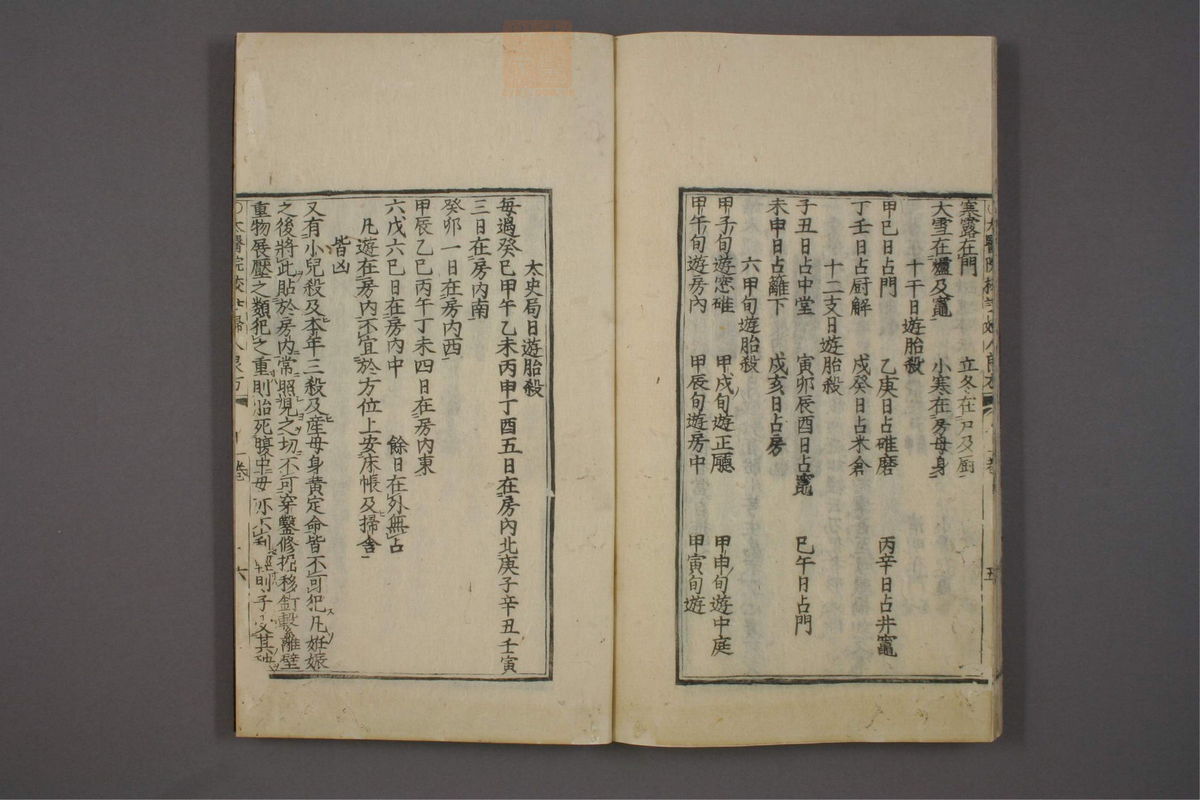 寒露在門　立冬在戸及厨
大雪在爐及竈　小寒在房母身
十干日遊胎殺
甲巳日占門　乙庚日占碓磨　丙辛日占井竈
丁壬日占厨解　戊癸日占米倉
十二支日遊胎殺
子丑日占中堂　寅卯辰酉日占竈　巳午日占門
未申日占籬下　戌亥日占房
六甲旬遊胎殺
甲子旬遊窓碓　甲戌旬遊正廳　甲申旬遊中庭
甲午旬遊房內　甲辰旬遊房中　甲寅旬遊
太史局日遊胎殺
每遇癸巳甲午乙未丙申丁酉五日在房內北庚子辛丑壬寅
三日在房內南
癸卯一日在房內西
甲辰乙巳丙午丁未四日在房內東
六戊六巳日在房內中　餘日在外無占
凡遊在房內不宜於方位上安床帳及掃舍
皆凶
又有小兒殺及本年三殺及產母身黃定命皆不可犯凡姙娠
之後將此貼於房內常照見之切不可穿鑿修掘移釘繫籬壁
重物展壓之類犯之重則胎死腹中母亦不利輕則子受其殃
太醫院校註婦人良方
一卷
六